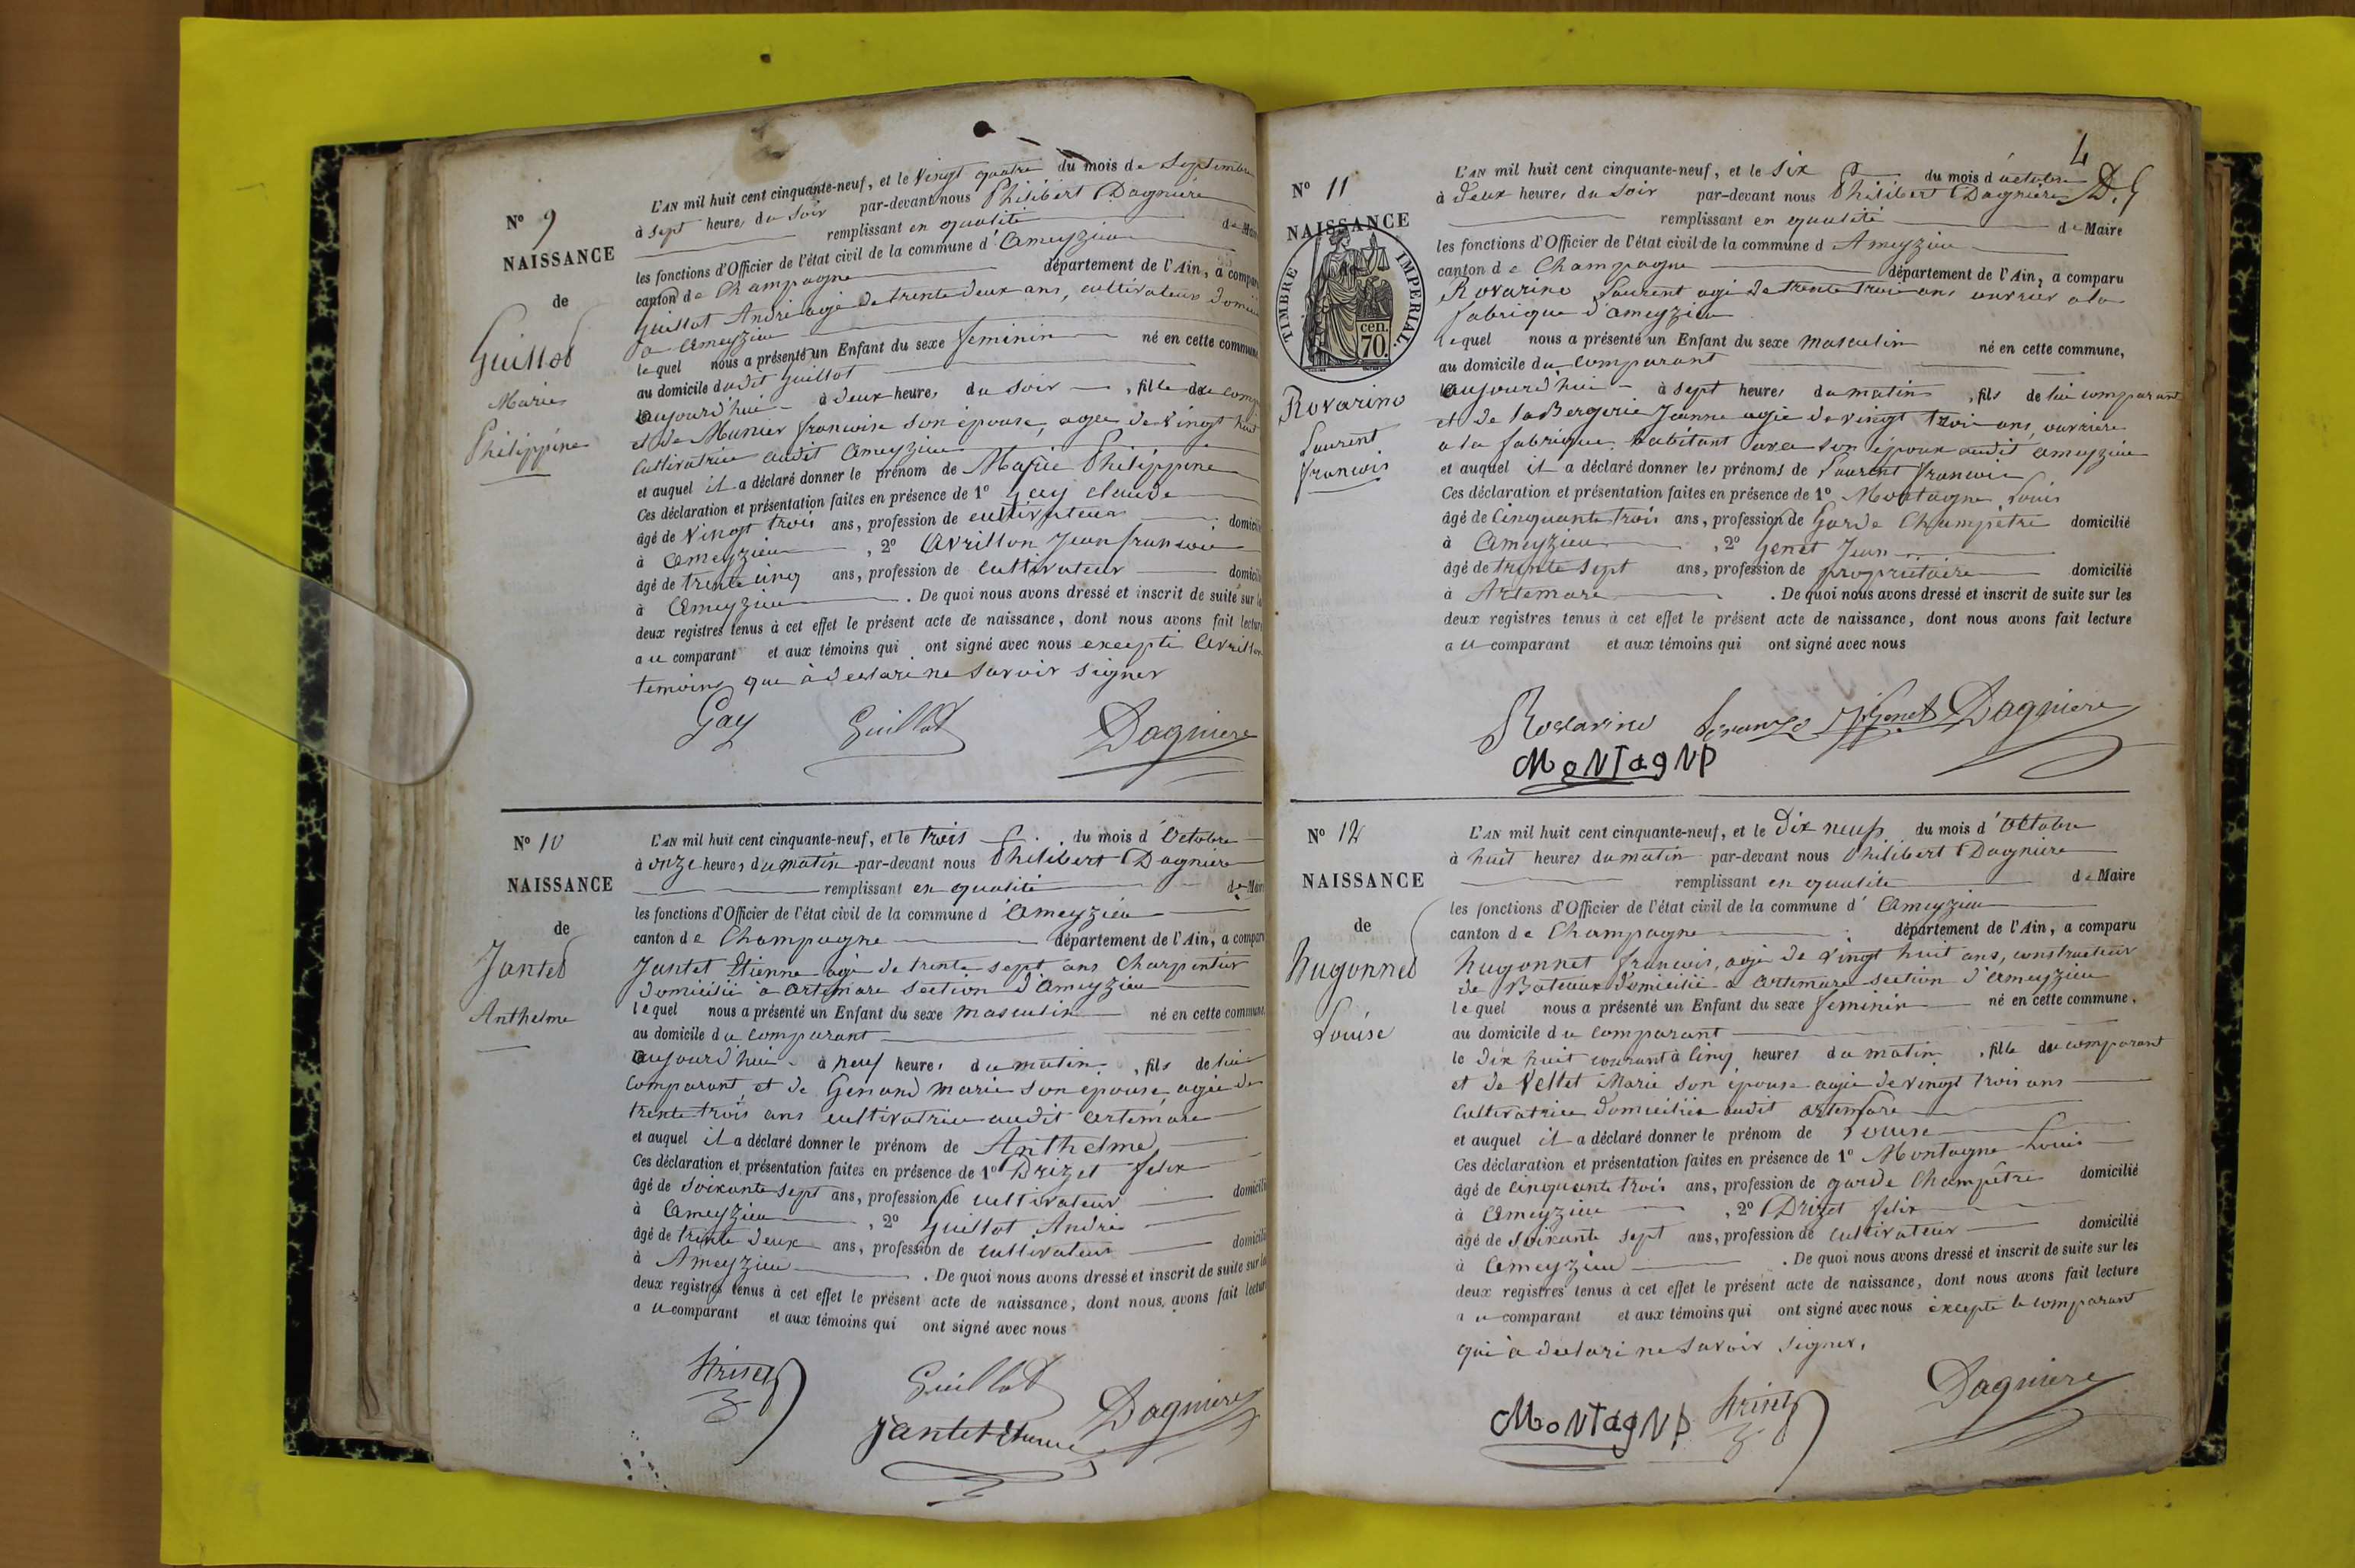 N° 9
NAISSANCE
de
Guillot
Marie
Philippine
L'AN mil huit cent cinquante-neuf, et le vingt quatre du mois de Septembre
à sept heures du soir par-devant nous Philibert Dagnière
remplissant en qualité de Maire
les fonctions d'Officier de l'état civil de la commune d'Ameyzieu
canton de Champagne département de l'Ain, a comparu
Guillot André agé de trente deux ans, cultivateur domicilié
a Ameyzieu
lequel nous a présenté un Enfant du sexe feminin né en cette commune
au domicile dudit Guillot
aujourd'hui à deux heures du soir, fille du comp
et de Munier francoise son épouse, agée de vingt huit
cultivatrice audit Ameyzieu
et auquel il a déclaré donner le prénom de Marie Philippine
Ces déclaration et présentation faites en présence de 1° Gay claude
âgé de vingt trois ans, profession de cultivateur domicilié
à Ameyzieu, 2° Avrillon Jean francois
âgé de trente cinq ans, profession de cultivateur domicilié
à Ameyzieu. De quoi nous avons dressé et inscrit de suite sur les
deux registres tenus à cet effet le présent acte de naissance, dont nous avons fait lecture
au comparant et aux témoins qui ont signé avec nous excepté Avrillon
temoins que à déclaré ne savoir signer
Gay Guillot Dagniere
N° 10
NAISSANCE
de
Jantet
Anthelme
L'AN mil huit cent cinquante-neuf, et le trois du mois d'Octobre
à onze heures du matin par-devant nous Philibert Dagniere
remplissant en qualité de Maire
les fonctions d'Officier de l'état civil de la commune d'Ameyzieu
canton de Champagne département de l'Ain, a comparu
Jantet Etienne agé de trente sept ans Charpentier
domicilié a Artemare section d'Ameyzieu
lequel nous a présenté un Enfant du sexe masculin né en cette commune,
au domicile du comparant
aujourd'hui à neuf heures du matin, fils de lui
comparant, et de Genand marie son épouse agée de
trente trois ans cultivatrice audit Artemare
et auquel il a déclaré donner le prénom de Anthelme
Ces déclaration et présentation faites en présence de 1° Drizet felix
âgé de soixante sept ans, profession de cultivateur domicilié
à Ameyzieu, 2° Guillot André
âgé de trente deux ans, profession de cultivateur domicilié
à Ameyzieu. De quoi nous avons dressé et inscrit de suite sur les
deux registres tenus à cet effet le présent acte de naissance, dont nous avons fait lecture
au comparant et aux témoins qui ont signé avec nous
Guillot
Jantet Etienne Dagniere
4
D. G
N° 11
NAISSANCE
de
TIMBRE IMPERIAL.
cen.
70.
Rovarino
Laurent
francois
L'AN mil huit cent cinquante-neuf, et le six du mois d'octobre
à deux heures du soir par-devant nous Philibert Dagnière
remplissant en qualité de Maire
les fonctions d'Officier de l'état civil de la commune d Ameyzieu
canton de Champagne département de l'Ain, a comparu
Rovarino Laurent agé de trente trois ans ouvrier a la
fabrique d'ameyzieu
lequel nous a présenté un Enfant du sexe masculin né en cette commune,
au domicile du comparant
aujourd'hui à sept heures du matin, fils de lui comparant
et de laBergerie Jeanne agée de vingt trois ans, ouvrière
a la fabrique habitant avec son époux audit ameyzieu
et auquel il a déclaré donner les prénoms de Laurent francois
Ces déclaration et présentation faites en présence de 1° Montagne Louis
âgé de cinquante trois ans, profession de Garde Champêtre domicilié
à Ameyzieu, 2° Genet Jean
âgé de trente sept ans, profession de propriétaire domicilié
à Artemare. De quoi nous avons dressé et inscrit de suite sur les
deux registres tenus à cet effet le présent acte de naissance, dont nous avons fait lecture
au comparant et aux témoins qui ont signé avec nous
Rovarino Genet Dagniere
MoNTagNP
N° 12
NAISSANCE
de
Hugonnet
Louise
L'AN mil huit cent cinquante-neuf, et le dix neuf du mois d'Octobre
à huit heures du matin par-devant nous Philibert Dagniere
remplissant en qualité de Maire
les fonctions d'Officier de l'état civil de la commune d'Ameyzieu
canton de Champagne département de l'Ain, a comparu
hugonnet francois, agé de vingt huit ans, constructeur
de Bateaux domicilié a artemare section d'ameyzieu
lequel nous a présenté un Enfant du sexe feminin né en cette commune,
au domicile du comparant
le dix huit courant à cinq heures du matin, fille du comparant
et de Vettet Marie son épouse agée de vingt trois ans
cultivatrice domiciliée audit artemare
et auquel il a déclaré donner le prénom de Louise
Ces déclaration et présentation faites en présence de 1° Montagne Louis
âgé de cinquante trois ans, profession de garde Champêtre domicilié
à Ameyzieu, 2° Drizet felix
âgé de soixante sept ans, profession de cultivateur domicilié
à Ameyzieu. De quoi nous avons dressé et inscrit de suite sur les
deux registres tenus à cet effet le présent acte de naissance, dont nous avons fait lecture
au comparant et aux témoins qui ont signé avec nous excepté le comparant
qui à declaré ne savoir signer.
MoNTagNP Dagniere